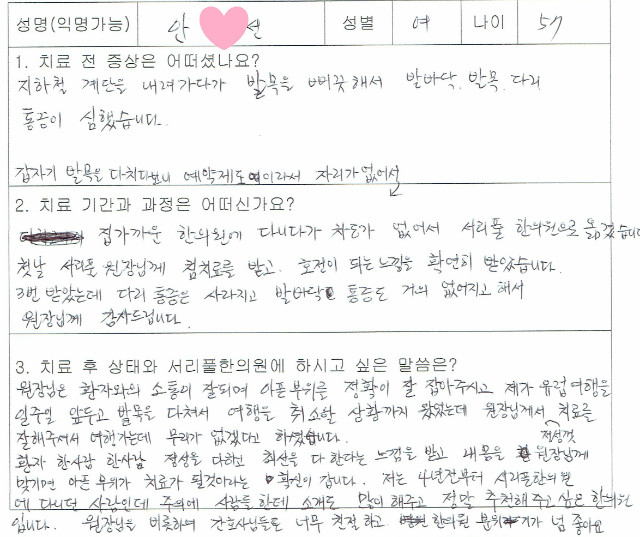 성명(익명가능) 안 선 성별 여 나이 57
1. 치료 전 증상은 어떠셨나요?
지하철 계단을 내려가다가 발목을 삐끗해서 발바닥, 발목, 다리
통증이 심했습니다.
갑자기 발목을 다치다보니 예약제도 이라서 자리가 없어서
2. 치료 기간과 과정은 어떠신가요?
집가까운 한의원에 다니다가 차도가 없어서 서리풀 한의원으로 옮겼습니다
첫날 서리풀 원장님께 침치료를 받고. 호전이 되는 느낌을 확연히 받았습니다.
3번 받았는데 다리 통증은 사라지고 발바닥 통증도 거의 없어지고 해서
원장님께 감사드립니다.
3. 치료 후 상태와 서리풀한의원에 하시고 싶은 말씀은?
원장님은 환자와의 소통이 잘되여 아픈부위를 정확이 잘 잡아주시고 제가 유럽여행을
일주일 앞두고 발목을 다쳐서 여행을 취소할 상황까지 왔었는데 원장님께서 치료를
잘해주셔서 여행가는데 무리가 없겠다고 하셨습니다. 정성껏
환자 한사람 한사람 정성을 다하고 최선을 다 한다는 느낌을 받고 내 몸을 원장님께
맞기면 아픈 부위가 치료가 될것이라는 확신이 갑니다. 저는 4년전부터 서리풀한의원
에 다니던 사람인데 주위에 사람들한테 소개도 많이 해주고 정말 추천해주고 싶은 한의원
입니다. 원장님을 비롯하여 간호사님들도 너무 친절하고 한의원 분위기가 넘 좋아요